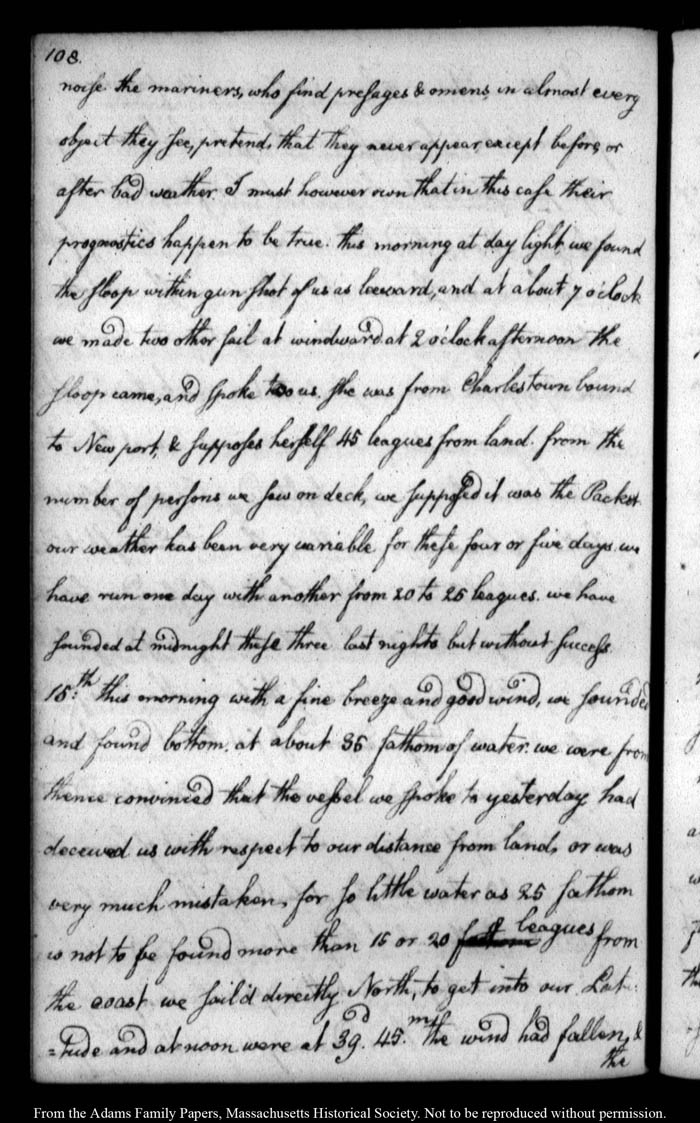 108.
noise. the mariners, who find presages & omens, in almost every
object they see, pretend, that they never appear, except before, or
after bad weather. I must however own that in this case their
prognostics happen to be true. this morning at day light, we found
the sloop within gun shot of us as leeward, and at about 7 o'clock
we made two other sail at windward. at 2 o'clock afternoon the
sloop came, and spoke to us. she was from Charlestown bound
to New port, & supposes herself 45 leagues from land. from the
number of persons we saw on deck, we supposed it was the Packet
our weather has been very variable for these four or five days. we
have run one day with another from 20 to 25 leagues. we have
sounded at midnight these three last nights but without success.
15.th this morning with a fine breeze and good wind, we sounded
and found bottom. at about 35 fathom of water. we were from
thence convinced that the vessel we spoke to yesterday had
deceived us with respect to our distance from land, or was
very much mistaken, for so little water as 25 fathom
is not to be found more than 15 or 20 leagues from
the coast. we sail'd directly North, to get into our Lati:
=tude and at noon were at 39.d 45.m the wind had fallen, &
the
From the Adams Family Papers, Massachusetts Historical Society. Not to be reproduced without permission.